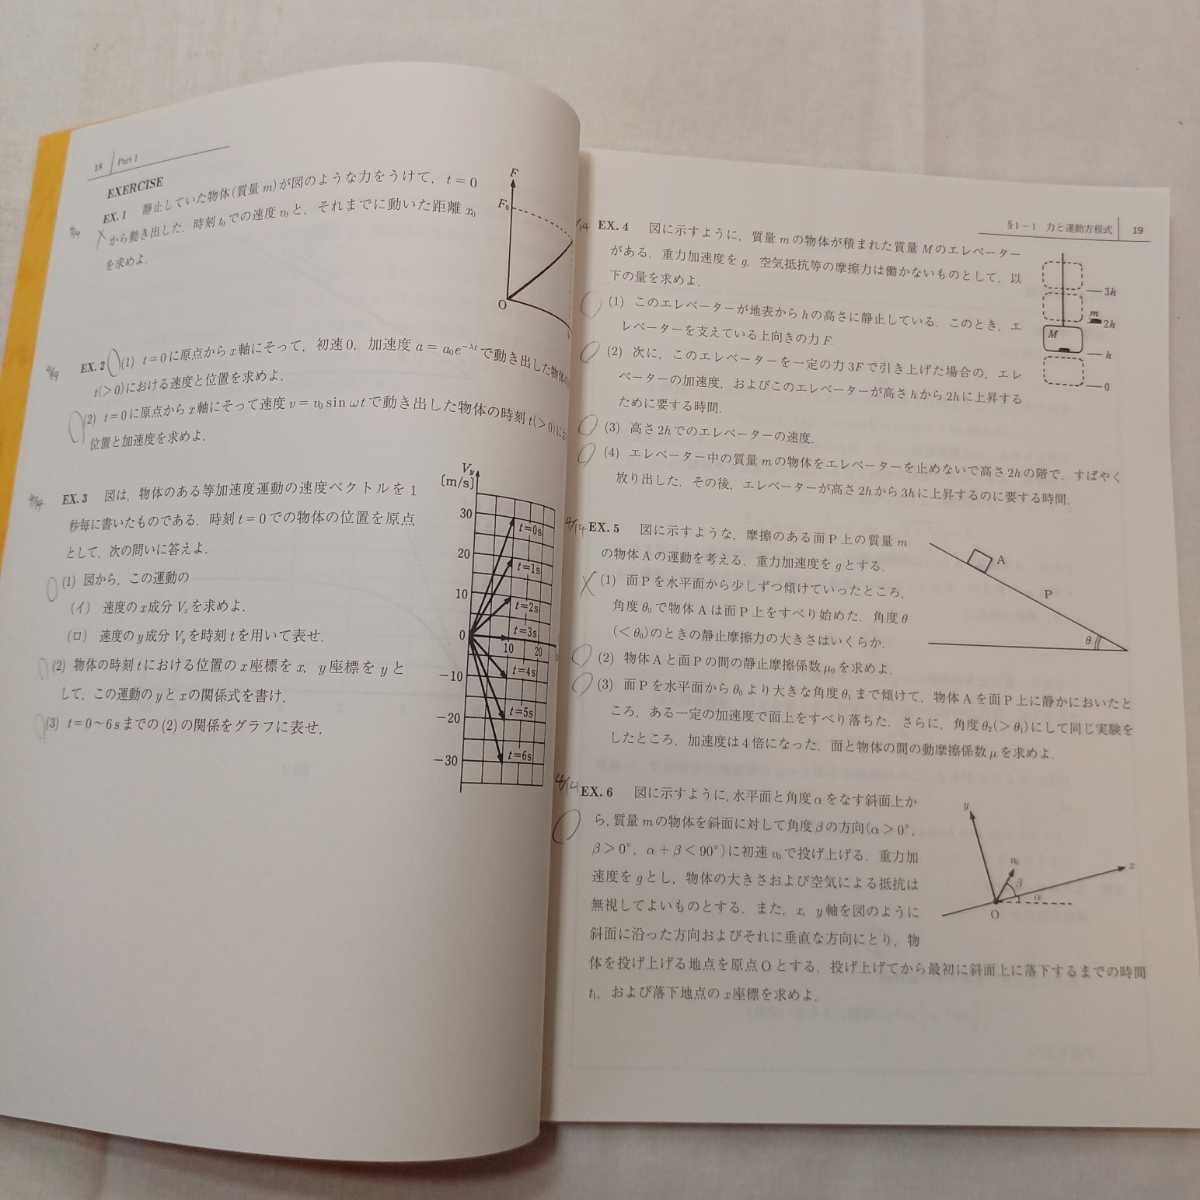 18 Part 1
EXERCISE
EX. 1 静止していた物体(質量 m)が図のような力をうけて, t = 0
から動き出した. 時刻 t₀ での速度 v₀ と, それまでに動いた距離 x₀
を求めよ.
F
F₀
O
EX. 2 (1) t = 0 に原点から x 軸にそって, 初速 0, 加速度 a = a₀e^{-λt} で動き出した物体の
t(> 0) における速度と位置を求めよ.
(2) t = 0 に原点から x 軸にそって速度 v = v₀ sin ωt で動き出した物体の時刻 t(> 0) に
位置と加速度を求めよ.
EX. 3 図は, 物体のある等加速度運動の速度ベクトルを 1
秒毎に書いたものである. 時刻 t = 0 での物体の位置を原点
として, 次の問いに答えよ.
(1) 図から, この運動の
(イ) 速度の x 成分 Vₓ を求めよ.
(ロ) 速度の y 成分 V_y を時刻 t を用いて表せ.
(2) 物体の時刻 t における位置の x 座標を x, y 座標を y と
して, この運動の y と x の関係式を書け.
(3) t = 0～6 s までの (2) の関係をグラフに表せ.
V_y
[m/s]
30
20
10
0
−10
−20
−30
10 20
t=0s
t=1s
t=2s
t=3s
t=4s
t=5s
t=6s
§1−1 力と運動方程式 19
4/14
EX. 4 図に示すように, 質量 m の物体が積まれた質量 M のエレベーター
がある. 重力加速度を g, 空気抵抗等の摩擦力は働かないものとして, 以
下の量を求めよ.
(1) このエレベーターが地表から h の高さに静止している. このとき, エ
レベーターを支えている上向きの力 F.
(2) 次に, このエレベーターを一定の力 3F で引き上げた場合の, エレ
ベーターの加速度, およびこのエレベーターが高さ h から 2h に上昇する
ために要する時間.
(3) 高さ 2h でのエレベーターの速度.
(4) エレベーター中の質量 m の物体をエレベーターを止めないで高さ 2h の階で, すばやく
放り出した. その後, エレベーターが高さ 2h から 3h に上昇するのに要する時間.
3h
m
2h
M
h
0
4/14
EX. 5 図に示すような, 摩擦のある面 P 上の質量 m
の物体 A の運動を考える. 重力加速度を g とする.
(1) 面 P を水平面から少しずつ傾けていったところ,
角度 θ₀ で物体 A は面 P 上をすべり始めた. 角度 θ
(< θ₀) のときの静止摩擦力の大きさはいくらか.
(2) 物体 A と面 P の間の静止摩擦係数 μ₀ を求めよ.
(3) 面 P を水平面から θ₀ より大きな角度 θ₁ まで傾けて, 物体 A を面 P 上に静かにおいたと
ころ, ある一定の加速度で面上をすべり落ちた. さらに, 角度 θ₂(> θ₁) にして同じ実験を
したところ, 加速度は 4 倍になった. 面と物体の間の動摩擦係数 μ を求めよ.
A
P
θ
4/14
EX. 6 図に示すように, 水平面と角度 α をなす斜面上か
ら, 質量 m の物体を斜面に対して角度 β の方向(α > 0°,
β > 0°, α + β < 90°)に初速 v₀ で投げ上げる. 重力加
速度を g とし, 物体の大きさおよび空気による抵抗は
無視してよいものとする. また, x, y 軸を図のように
斜面に沿った方向およびそれに垂直な方向にとり, 物
体を投げ上げる地点を原点 O とする. 投げ上げてから最初に斜面上に落下するまでの時間
t₁, および落下地点の x 座標を求めよ.
y
v₀
β
α
x
O